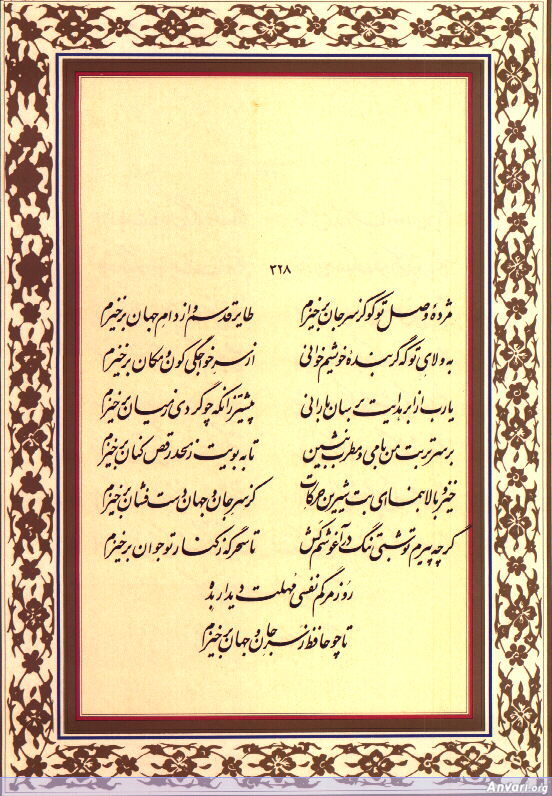 ۳۲۸
مژدهٔ وصل تو کو کز سر جان برخیزم طایر قدسم و از دام جهان برخیزم
به ولای تو که گر بندهٔ خویشم خوانی از سر خواجگی کون و مکان برخیزم
یارب از ابر هدایت برسان بارانی پیشتر زانکه چو گردی ز میان برخیزم
بر سر تربت من بامی و مطرب بنشین تا به بویت ز لحد رقص کنان برخیزم
خیز و بالا بنمای ای بت شیرین حرکات کز سر جان و جهان دست فشان برخیزم
گرچه پیرم تو شبی تنگ در آغوشم کش تا سحرگه ز کنار تو جوان برخیزم
روز مرگم نفسی مهلت دیدار بده
تا چو حافظ ز سر جان و جهان برخیزم
Anvari.org